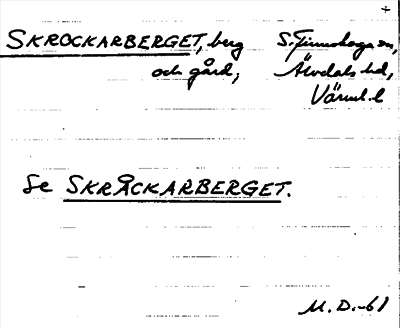 +
SKROCKARBERGET, berg S. Finnskoga sn,
och gård, Älvdals hd,
Värml. l
Se SKRÅCKARBERGET.
M. D. -61